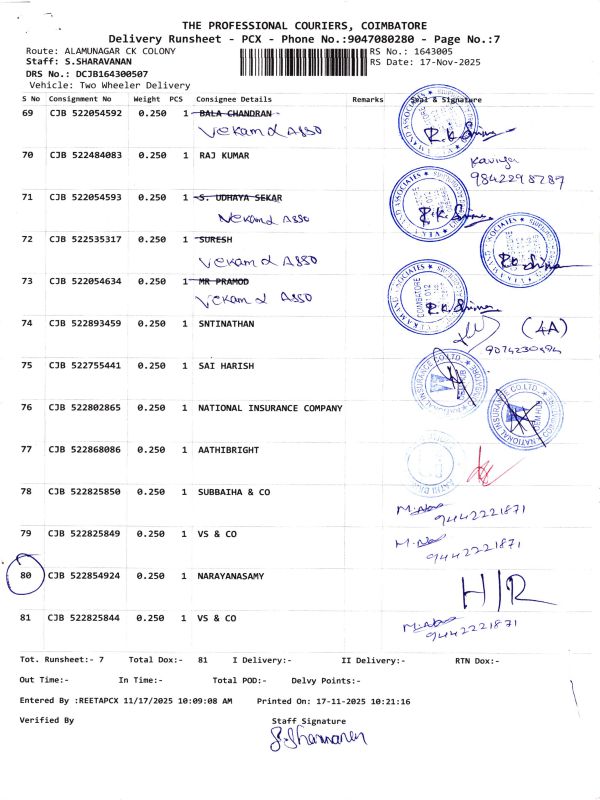 THE PROFESSIONAL COURIERS, COIMBATORE
Delivery Runsheet - PCX - Phone No.:9047080280 - Page No.:7
Route: ALAMUNAGAR CK COLONY RS No.: 1643005
Staff: S.SHARAVANAN RS Date: 17-Nov-2025
DRS No.: DCJB164300507
Vehicle: Two Wheeler Delivery
S No Consignment No Weight PCS Consignee Details Remarks Seal & Signature
69 CJB 522054592 0.250 1 BALA CHANDRAN
Vekam & Asso
70 CJB 522484083 0.250 1 RAJ KUMAR
9842298789
71 CJB 522054593 0.250 1 S. UDHAYA SEKAR
Vekam & Asso
72 CJB 522535317 0.250 1 SURESH
Vekam & Asso
73 CJB 522054634 0.250 1 MR PRAMOD
Vekam & Asso
74 CJB 522893459 0.250 1 SNTINATHAN (4A)
75 CJB 522755441 0.250 1 SAI HARISH
76 CJB 522802865 0.250 1 NATIONAL INSURANCE COMPANY
77 CJB 522868086 0.250 1 AATHIBRIGHT
78 CJB 522825850 0.250 1 SUBBAIHA & CO
9442221871
79 CJB 522825849 0.250 1 VS & CO
9442221871
80 CJB 522854924 0.250 1 NARAYANASAMY H/R
81 CJB 522825844 0.250 1 VS & CO
9442221871
Tot. Runsheet:- 7 Total Dox:- 81 I Delivery:- II Delivery:- RTN Dox:-
Out Time:- In Time:- Total POD:- Delvy Points:-
Entered By :REETAPCX 11/17/2025 10:09:08 AM Printed On: 17-11-2025 10:21:16
Verified By Staff Signature
S.Sharavanan